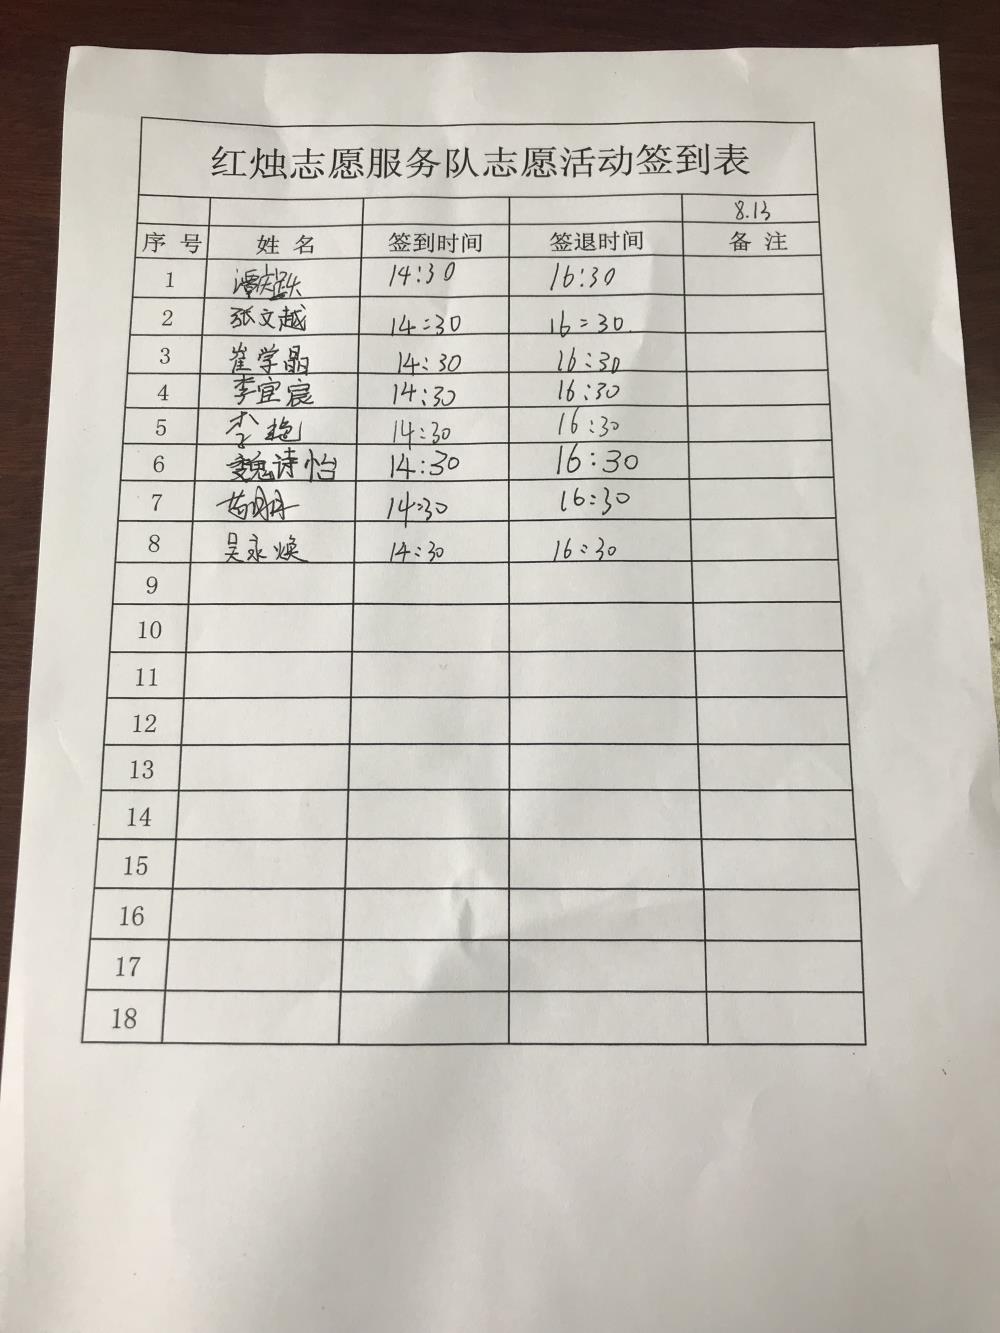 红烛志愿服务队志愿活动签到表
8.13
序号 姓名 签到时间 签退时间 备注
1 14:30 16:30
2 张文越 14:30 16:30
3 崔学晶 14:30 16:30
4 李宜宸 14:30 16:30
5 李艳 14:30 16:30
6 魏诗怡 14:30 16:30
7 14:30 16:30
8 吴永焕 14:30 16:30
9
10
11
12
13
14
15
16
17
18